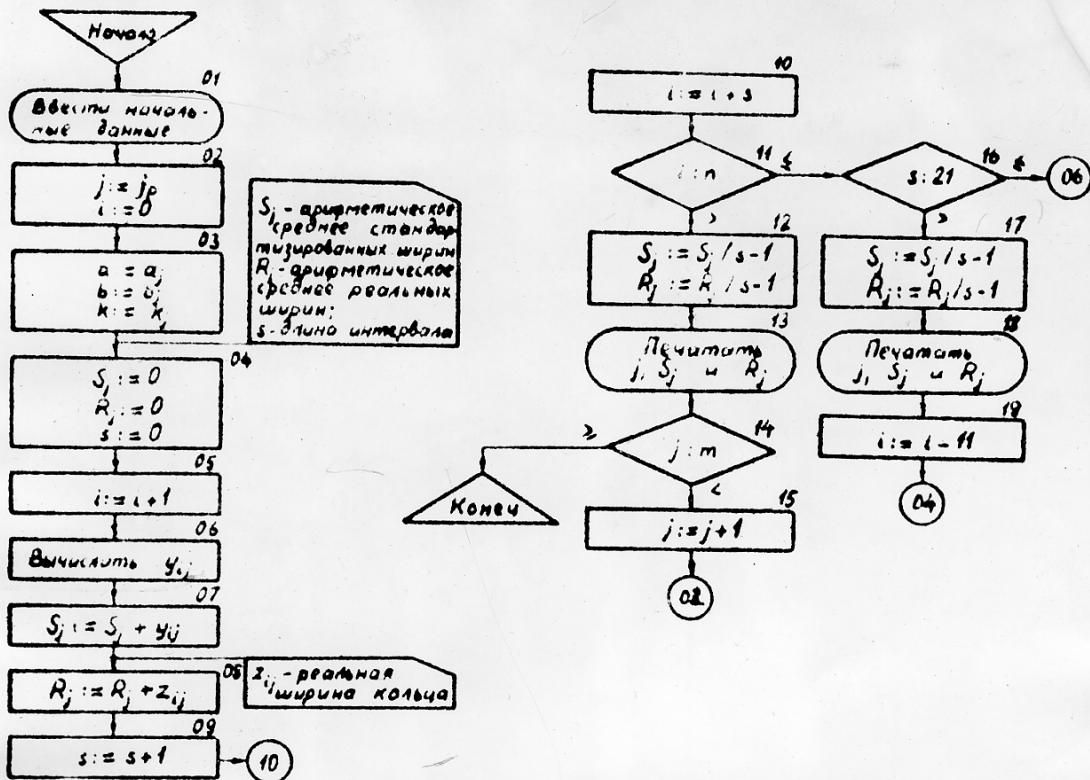 Начало
01
Ввести началь-
ные данные
02
j := jp
i := 0
03
a := aj
b := bj
k := kj
Sj - арифметическое
среднее стандар
тизированных ширин
Rj - арифметическое
среднее реальных
ширин;
s - длина интервала
04
Sj := 0
Rj := 0
s := 0
05
i := i + 1
06
Вычислить yij
07
Sj := Sj + yij
08
Rj := Rj + zij
zij - реальная
ширина кольца
09
s := s + 1
10
10
i := i + s
11
i : n
≤
>
12
Sj := Sj / s - 1
Rj := Rj / s - 1
13
Печатать
j, Sj и Rj
14
j : m
≥
<
Конец
15
j := j + 1
02
16
s : 21
≤
>
06
17
Sj := Sj / s - 1
Rj := Rj / s - 1
18
Печатать
j, Sj и Rj
19
i := i - 11
04